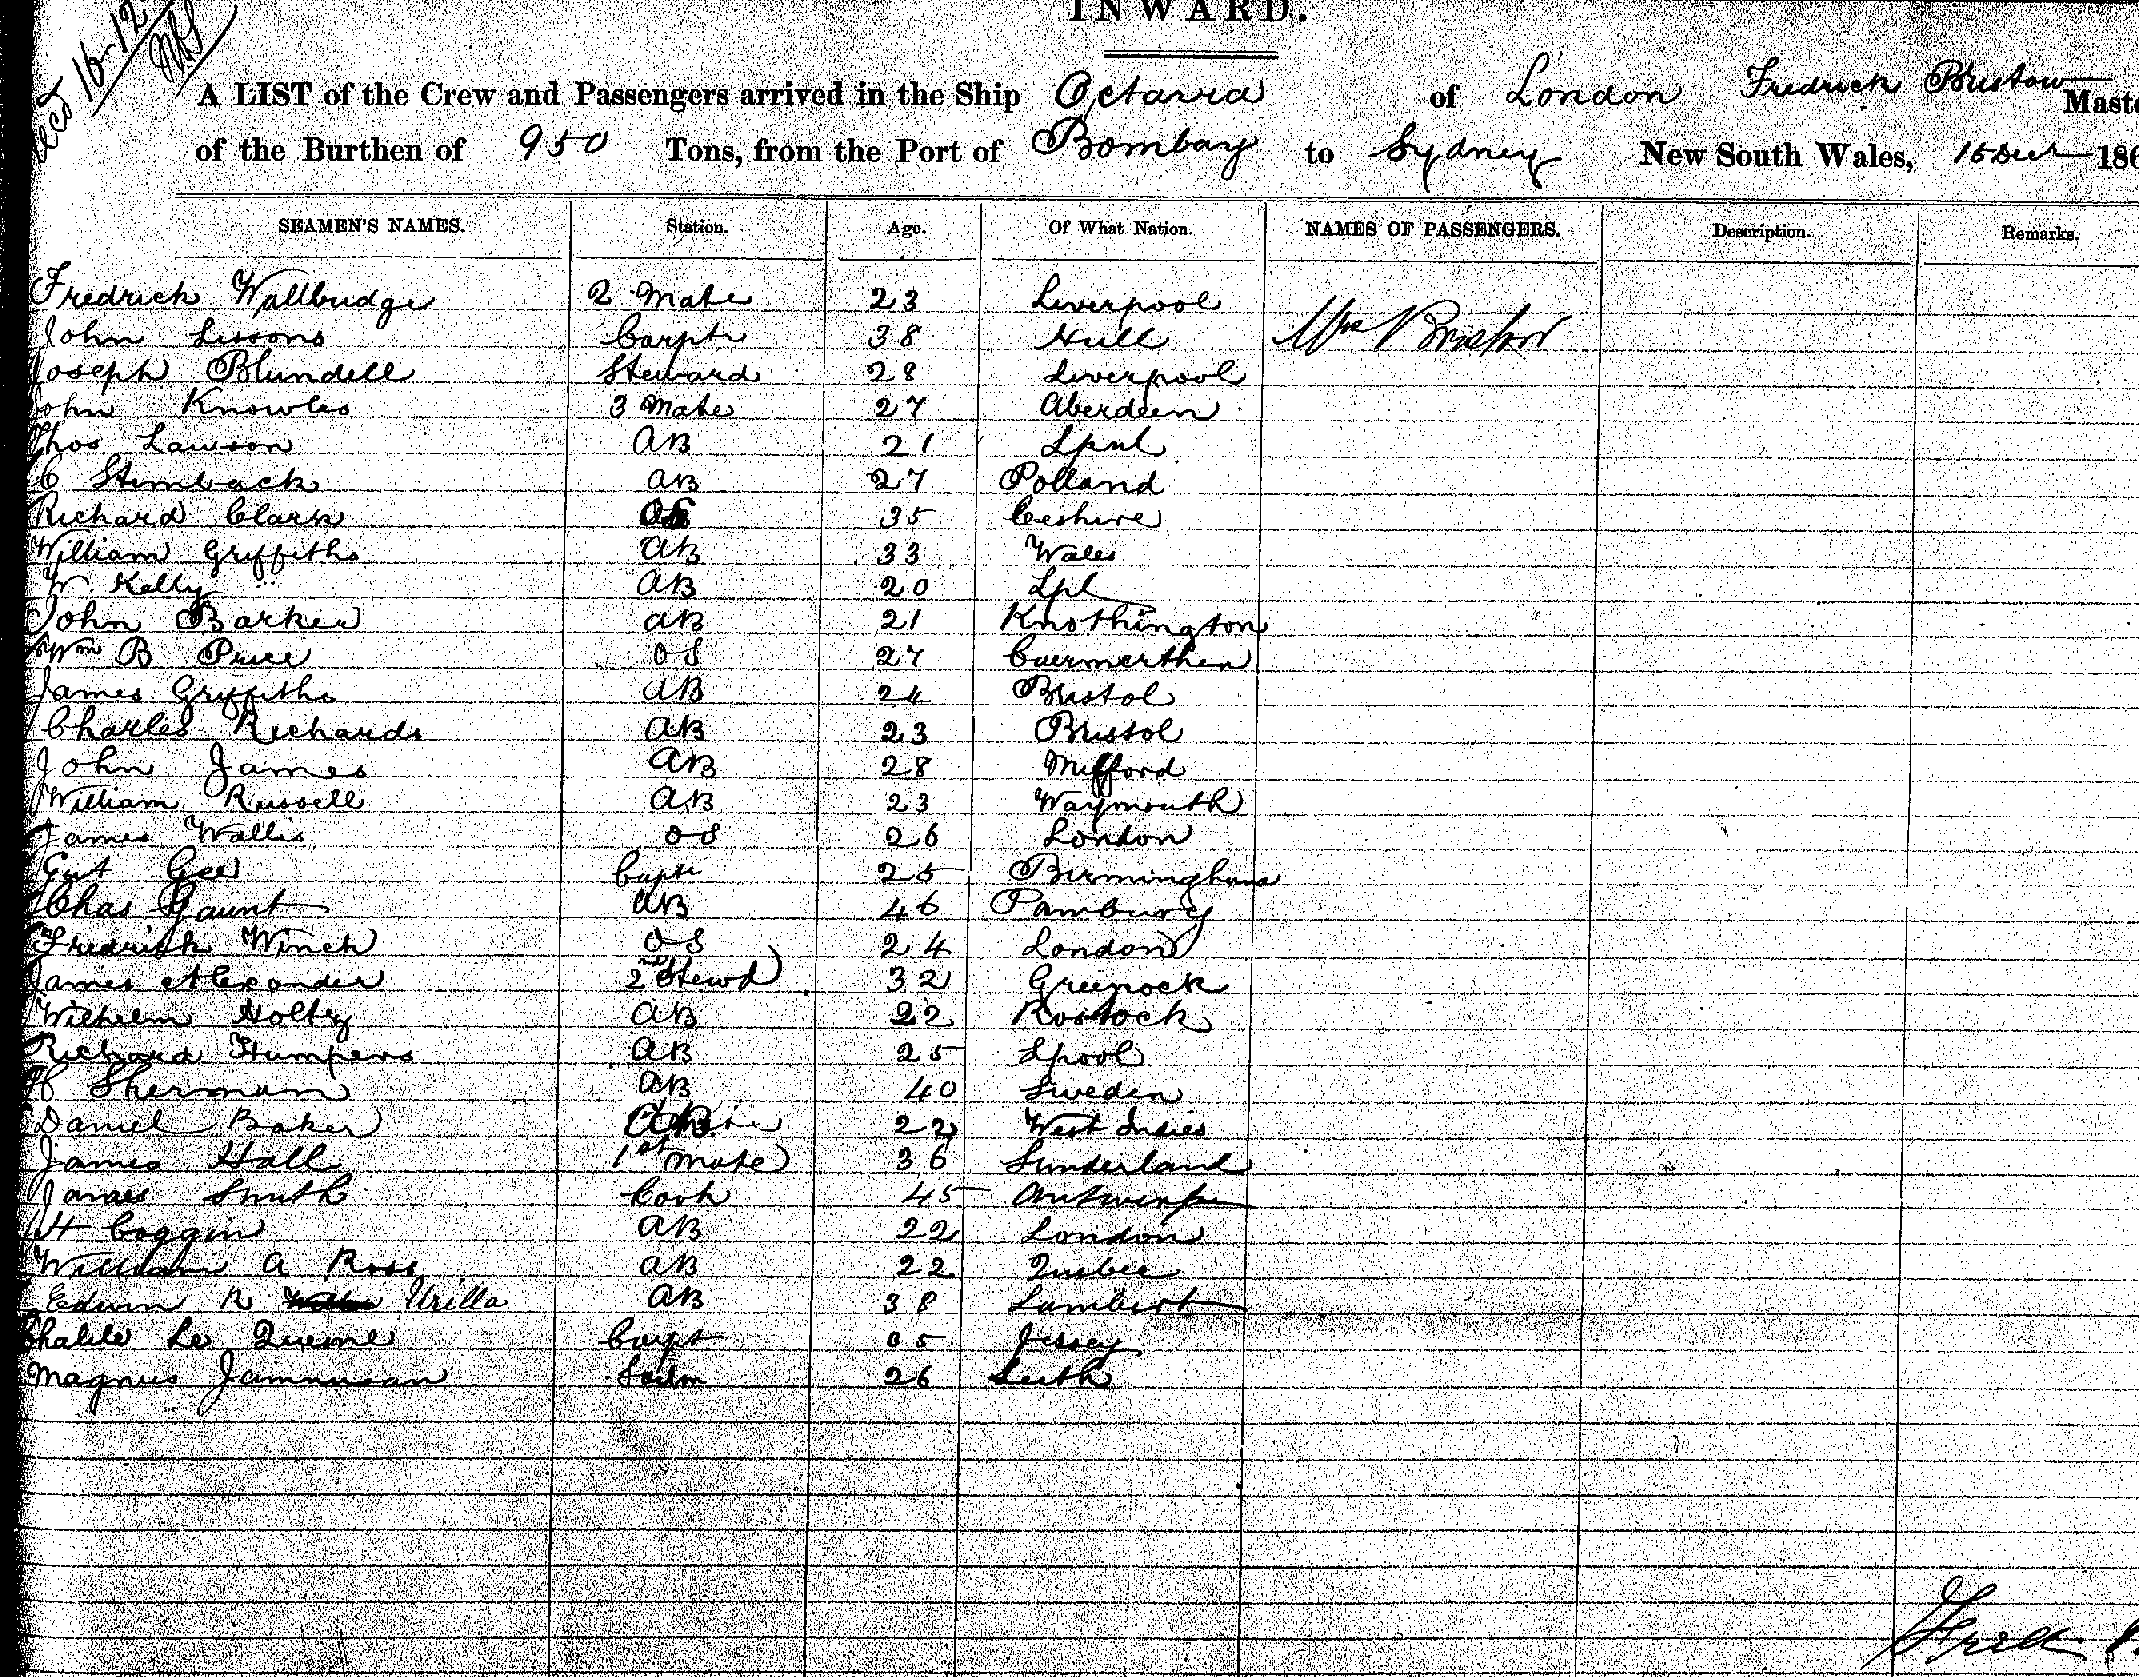 INWARD.
16-12
A LIST of the Crew and Passengers arrived in the Ship Octavia of London Fredrick Bristow Maste
of the Burthen of 950 Tons, from the Port of Bombay to Sydney New South Wales, 15 Dect 186
SEAMEN'S NAMES. Station. Age. Of What Nation. NAMES OF PASSENGERS. Description. Remarks.
Fredrick Wallbridge 2 Mate 23 Liverpool
John Lissons Carptr 38 Hull Mrs Bristow
Joseph Blundell Steward 28 Liverpool
John Knowles 3 Mate 27 Aberdeen
Thos Lawson AB 21 Lpul
C Stimback AB 27 Polland
Richard Clark OS 35 Ceshire
William Griffiths AB 33 Wales
W. Kelly AB 20 Lpl
John Barker AB 21 Knothington
Wm B Price OS 27 Caermerthen
James Griffiths AB 24 Bristol
Charles Richards AB 23 Bristol
John James AB 28 Milford
William Russell AB 23 Waymouth
James Wallis OS 26 London
Gee 25 Birmingham
Chas Gaunt AB 46
Fredrick Winch OS 24 London
James Alexander 2nd Stewd 32 Greenock
Wilhelm Holtz AB 22 Rostock
Richard Humpers AB 25 Lpool
H Sherman AB 40 Sweden
Daniel Baker AB 22 West Indies
James Hall 1st Mate 36 Sunderland
James Smith Cook 45 Antwerp
H Coggin AB 22 London
William A Rose AB 22 Quebec
Edwin R Urilla AB 38 Lambert
Le Quesne Carpt 05 Jersey
Magnus Jamieson 26 Leith
Fred